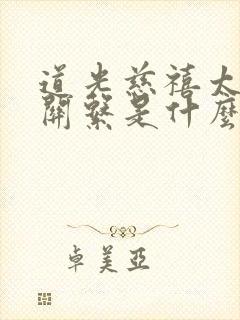 道光慈禧太
關繫是什麼
卓美亞